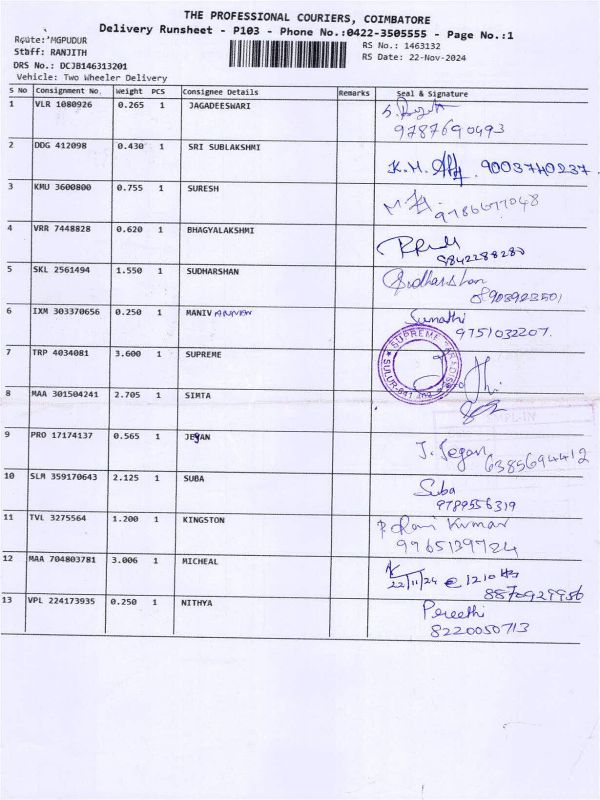 THE PROFESSIONAL COURIERS, COIMBATORE
Delivery Runsheet - P103 - Phone No.:0422-3505555 - Page No.:1
Route: MGPUDUR
RS No.: 1463132
Staff: RANJITH
RS Date: 22-Nov-2024
DRS No.: DCJB146313201
Vehicle: Two Wheeler Delivery
S No Consignment No. Weight PCS Consignee Details Remarks Seal & Signature
1 VLR 1080926 0.265 1 JAGADEESWARI
9787690493
2 DDG 412098 0.430 1 SRI SUBLAKSHMI
K.M. 9003740237
3 KMU 3600800 0.755 1 SURESH
9786677048
4 VRR 7448828 0.620 1 BHAGYALAKSHMI
9842288280
5 SKL 2561494 1.550 1 SUDHARSHAN
Sudharshan
8903923501
6 IXM 303370656 0.250 1 MANIV ANNAN
Sumathi
9751032207.
7 TRP 4034081 3.600 1 SUPREME
SUPREME
SULUR-641 402
8 MAA 301504241 2.705 1 SIMTA
9 PRO 17174137 0.565 1 JEgAN
J. Jegan
6385694412
10 SLM 359170643 2.125 1 SUBA
Suba
9789556319
11 TVL 3275564 1.200 1 KINGSTON
P. Ravi Kumar
9765139724
12 MAA 704803781 3.006 1 MICHEAL
22/11/24 @ 1210 Hs
8870929956
13 VPL 224173935 0.250 1 NITHYA
Preethi
8220050713